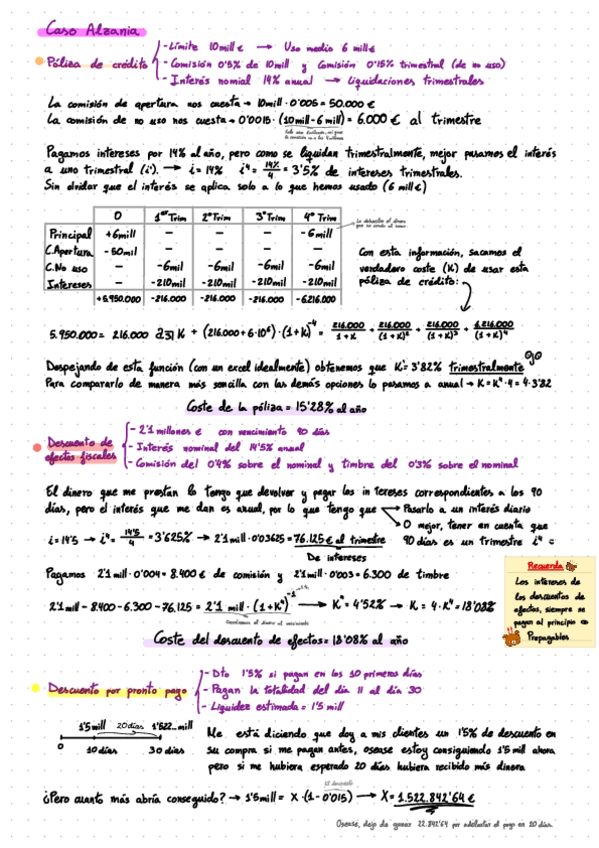 Caso Alzania
Póliza de crédito
- Límite 10mill € → Uso medio 6 mill €
- Comisión 0'5% de 10mill y Comisión 0'15% trimestral (de no uso)
- Interés nomial 14% anual → Liquidaciones trimestrales
La comisión de apertura nos cuesta → 10mill · 0'005 = 50.000 €
La comisión de no uso nos cuesta → 0'0015 · (10mill - 6 mill) = 6.000 € al trimestre
Pagamos intereses por 14% al año, pero como se liquidan trimestralmente, mejor pasamos el interés
a uno trimestral (i'). → i = 14% i⁴ = 14%/4 = 3'5% de intereses trimestrales.
Sin olvidar que el interés se aplica solo a lo que hemos usado (6 mill €)
0 1er Trim 2º Trim 3º Trim 4º Trim
Principal +6mill - - - -6mill
C.Apertura -50mil - - - -
C.No uso - -6mil -6mil -6mil -6mil
Intereses - -210mil -210mil -210mil -210mil
+5.950.000 -216.000 -216.000 -216.000 -6.216.000
Con esta información, sacamos el
verdadero coste (K) de usar esta
póliza de crédito:
5.950.000 = 216.000 a3˥K + (216.000+6·10⁶)·(1+K)⁻⁴ = 216.000/1+K + 216.000/(1+K)² + 216.000/(1+K)³ + 6.216.000/(1+K)⁴
Despejando de esta función (con un excel idealmente) obtenemos que K = 3'82% trimestralmente
Para compararlo de manera más sencilla con las demás opciones lo pasamos a anual → K = K⁴·4 = 4·3'82
Coste de la póliza = 15'28% al año
Descuento de
efectos fiscales
- 2'1 millones € con vencimiento 90 días
- Interés nominal del 14'5% anual
- Comisión del 0'4% sobre el nominal y timbre del 0'3% sobre el nominal
El dinero que me prestan lo tengo que devolver y pagar los intereses correspondientes a los 90
días, pero el interés que me dan es anual, por lo que tengo que → Pasarlo a un interés diario
O mejor, tener en cuenta que
i = 14'5 → i⁴ = 14'5/4 = 3'625% → 2'1 mill · 0'03625 = 76.125 € al trimestre
90 días es un trimestre i⁴ =
De intereses
Pagamos 2'1 mill · 0'004 = 8.400 € de comisión y 2'1 mill · 0'003 = 6.300 de timbre
2'1 mill - 8.400 - 6.300 - 76.125 = 2'1 mill · (1+K⁴)⁻¹ → K⁴ = 4'52% → K = 4·K⁴ = 18'08%
Recuerda
Los intereses de
los descuentos de
efectos, siempre se
pagan al principio
Prepagables
Coste del descuento de efectos = 18'08% al año
Descuento por pronto pago
- Dto 1'5% si pagan en los 10 primeros días
- Pagan la totalidad del día 11 al día 30
- Liquidez estimada = 1'5 mill
1'5 mill 20 días 1'522...mill
0 10 días 30 días
Me está diciendo que doy a mis clientes un 1'5% de descuento en
su compra si me pagan antes, osease estoy consiguiendo 1'5 mill ahora
pero si me hubiera esperado 20 días hubiera recibido más dinero
¿Pero cuanto más abría conseguido? → 1'5 mill = X·(1-0'015) → X = 1.522.842'64 €
Osease, dejo de ganar 22.842'64 por adelantar el pago en 20 días.